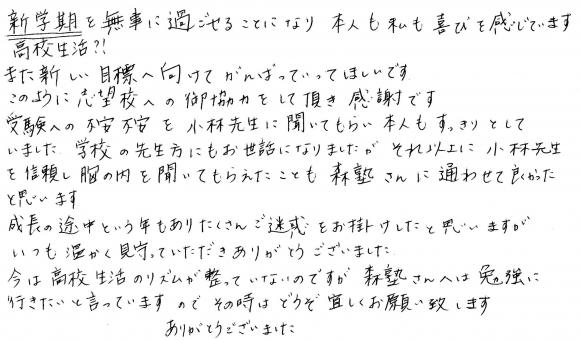 新学期を無事に過ごせることになり 本人も私も喜びを感じています
高校生活?!
また新しい目標へ向けてがんばっていってほしいです
このように志望校への御協力をして頂き感謝です
受験への不安不安を小林先生に聞いてもらい本人もすっきりとして
いました 学校の先生方にもお世話になりましたが それ以上に 小林先生
を信頼し胸の内を聞いてもらえたことも 森塾さんに通わせて良かった
と思います
成長の途中という年もありたくさんご迷惑をお掛けしたと思いますが
いつも温かく見守っていただきありがとうございました
今は高校生活のリズムが整っていないのですが 森塾さんへは勉強に
行きたいと言っていますので その時はどうぞ宜しくお願い致します
ありがとうございました